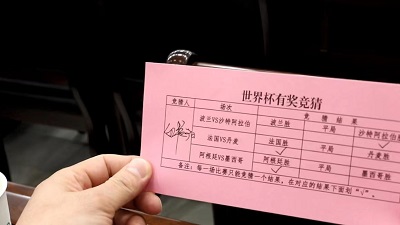 世界杯有奖竞猜
竞猜人 场次 竞猜结果
波兰VS沙特阿拉伯 波兰胜 平局 沙特阿拉伯
法国VS丹麦 法国胜 平局 丹麦胜
阿根廷VS墨西哥 阿根廷胜 平局 墨西哥胜
备注：每一场比赛只能竞猜一个结果，在对应的结果下面划“√”。